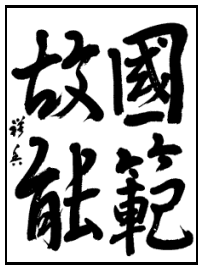 國範
故能
祥兵